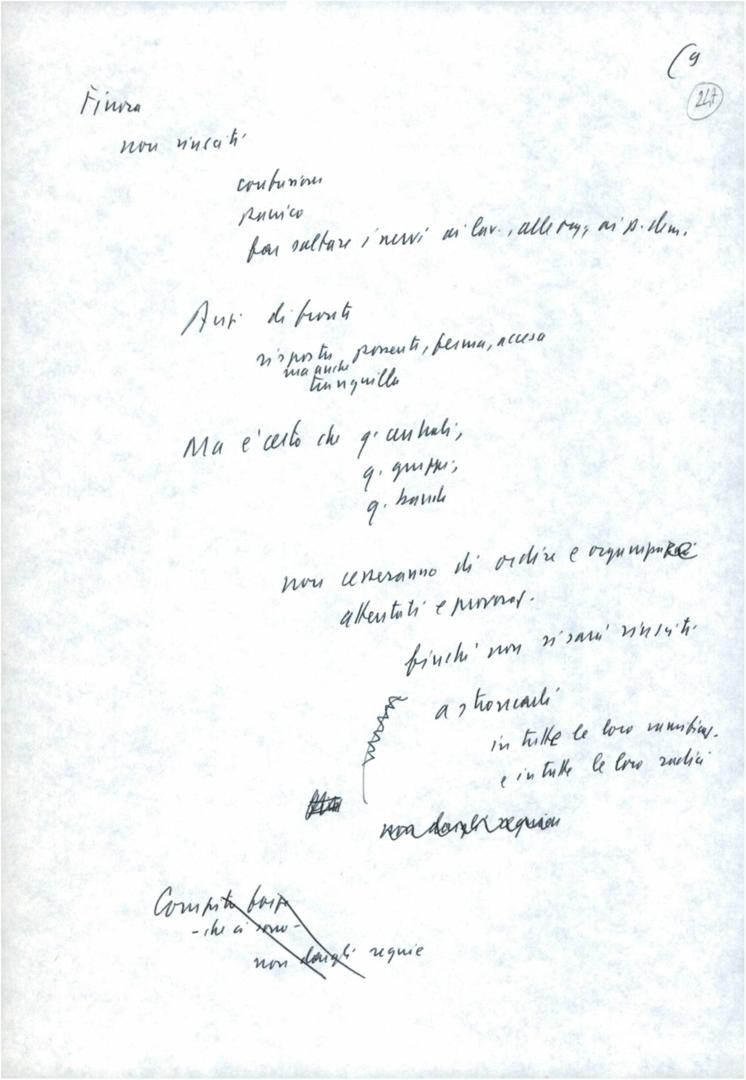 (9
247
Finora
non riusciti
confusione
panico
far saltare i nervi ai lav., alle org., ai p. dem.
Anzi di fronte
risposta possente, ferma, accesa
ma anche
tranquilla
Ma è certo che q. centrali,
q. gruppi,
q. bande
non cesseranno di ordire e organizzare
attentati e provocaz.
finché non si sarà riusciti
a stroncarli
in tutte le loro ramificaz.
e in tutte le loro radici
non dargli requie
Compito forze
- che ci sono -
non dargli requie